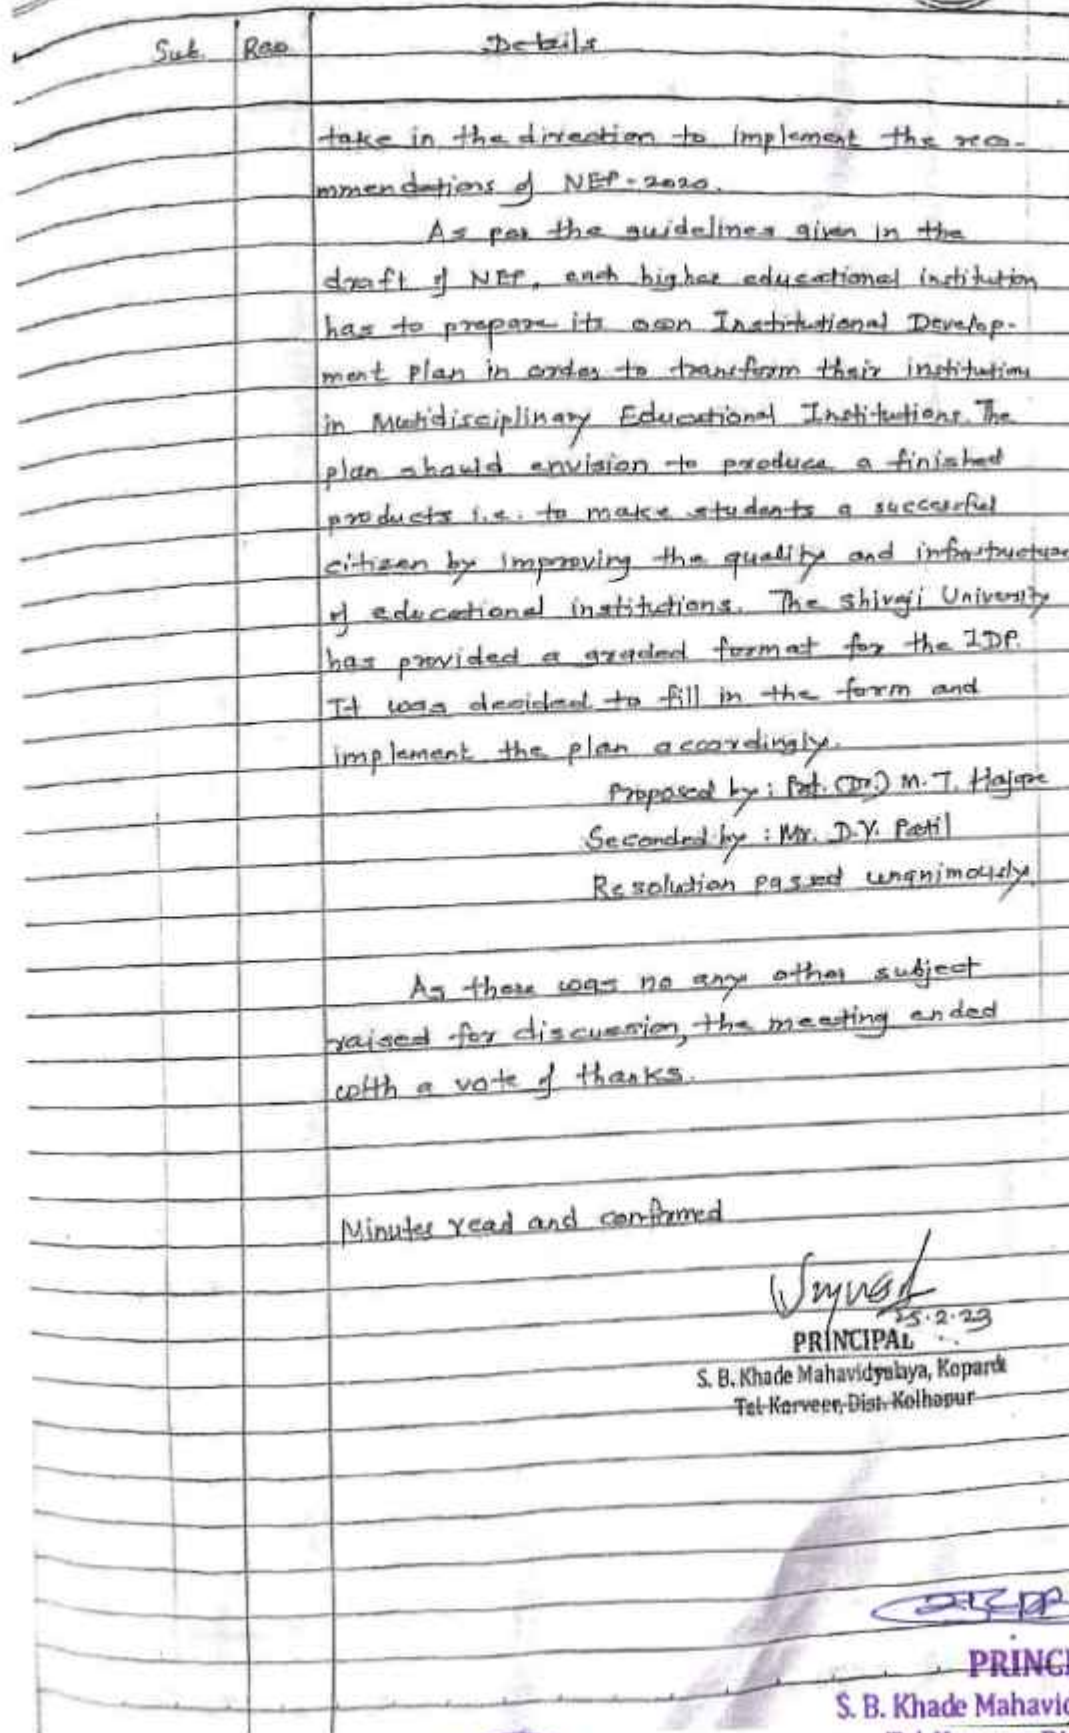 Sub. Reso Details
take in the direction to implement the reco-
mmendations of NEP-2020.
As per the guidelines given in the
draft of NEP, each higher educational institution
has to prepare its own Institutional Develop-
ment plan in order to transform their institutions
in Multidisciplinary Educational Institutions. The
plan should envision to produce a finished
products i.e. to make students a successful
citizen by improving the quality and infrastructure
of educational institutions. The Shivaji University
has provided a graded format for the IDP.
It was decided to fill in the form and
implement the plan accordingly.
Proposed by : Prof. (Dr.) M. T. Hajare
Seconded by : Mr. D.Y. Patil
Resolution passed unanimously.
As there was no any other subject
raised for discussion, the meeting ended
with a vote of thanks.
Minutes read and confirmed
25.2.23
PRINCIPAL
S. B. Khade Mahavidyalaya, Koparde
Tal-Karveer, Dist. Kolhapur
PRINCI
S. B. Khade Mahavid